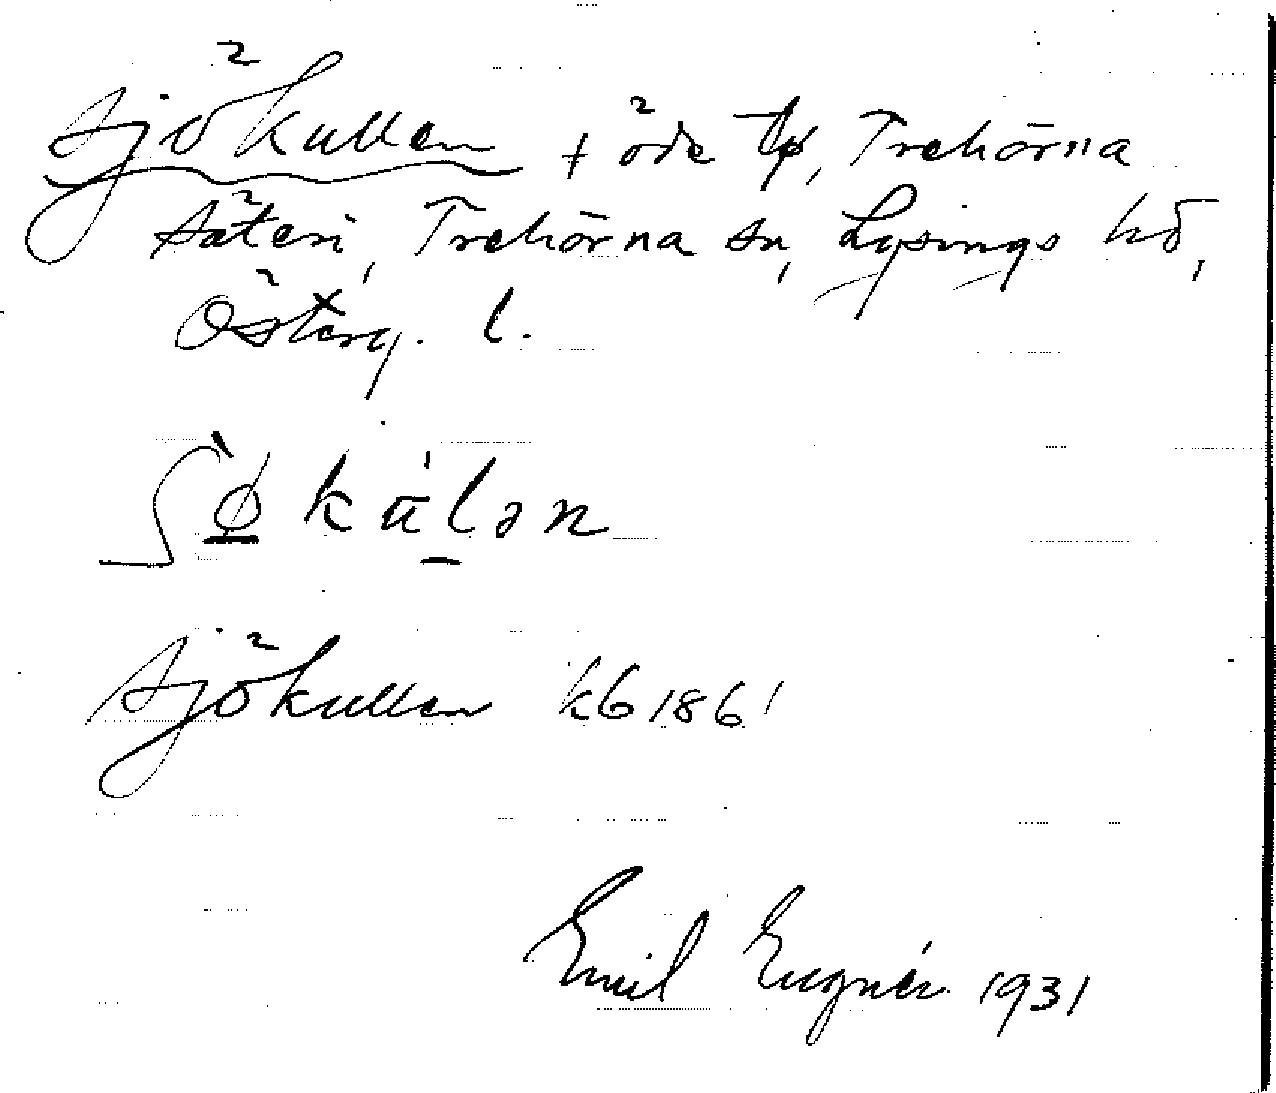 Sjökullen + öde tp, Trehörna
säteri, Trehörna sn, Lysings hd,
Österg. l.
ʃø̱ kú̄l̠ən
Sjökullen kb 1861
Emil Eugnér 1931